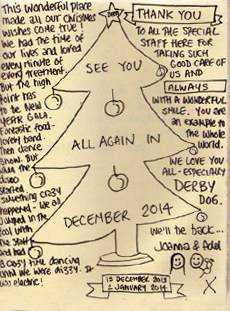 This wonderful place
made all our Christmas
wishes come true!
We had the time of
our lives and loved
every minute of
every treatment.
But the high
has to
be the New
YEAR GALA.
Fantastic food-
lovely band.
Then dance
show. But
when the
disco
started,
something crazy
happened - we all
jumped in the
pool with
the staff
and had
a crazy time dancing
until we were dizzy. It
was electric!
SEE YOU
ALL AGAIN IN
DECEMBER 2014
15 DECEMBER 2013
2 JANUARY 2014
THANK YOU
TO ALL THE SPECIAL
STAFF HERE FOR
TAKING SUCH
GOOD CARE OF
US AND
ALWAYS
WITH A WONDERFUL
SMILE. YOU ARE
AN EXAMPLE TO
the Whole
World.
WE LOVE YOU
ALL - ESPECIALLY
DERBY
DOG.
We'll be back...
Joanna & Adel
X